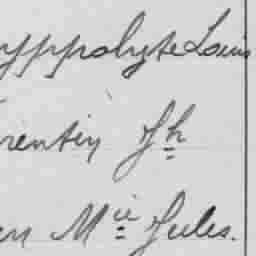 yppolyte Louis
rentin Jh
en Mie Jules.